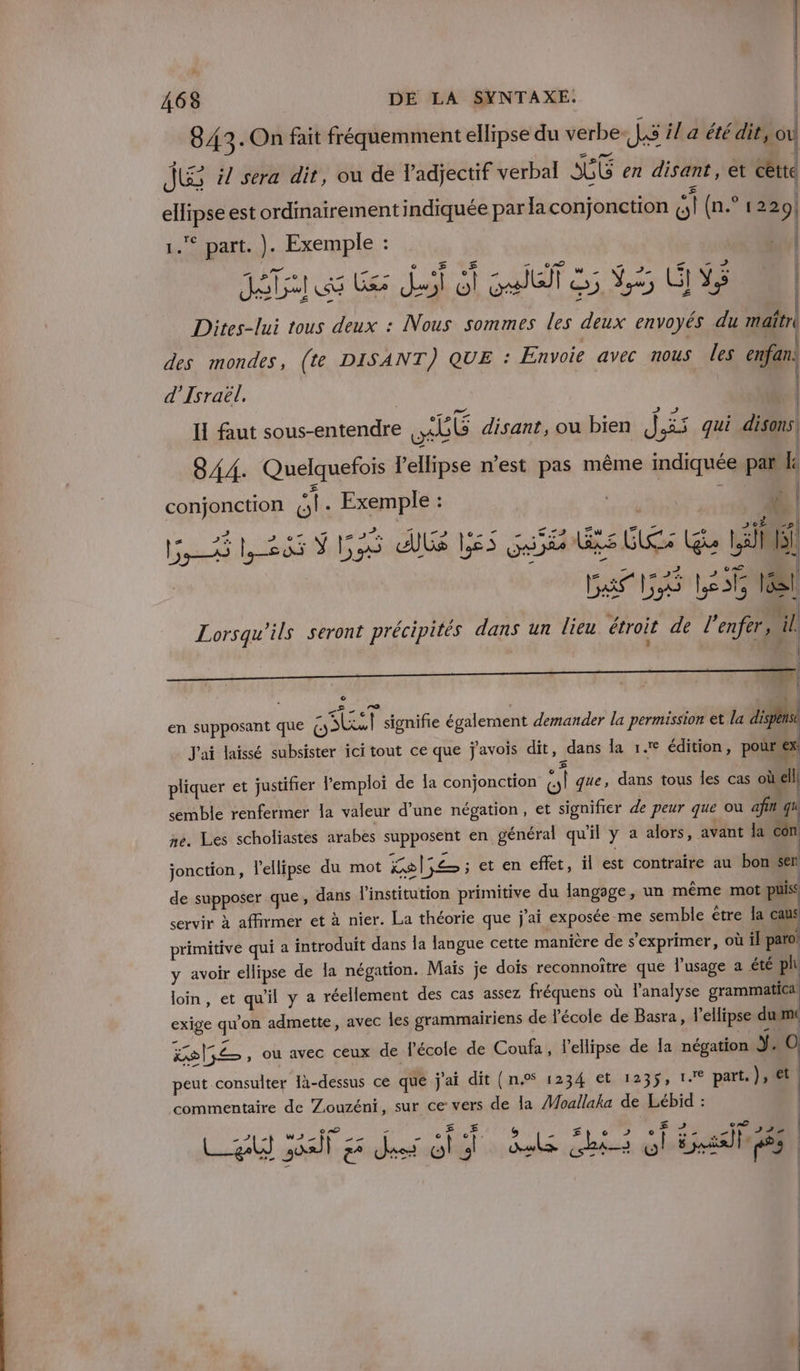 468 DE LA SYNTAXE.
843. On fait fréquemment ellipse du verbe قال il a été dit, ou
يقال il sera dit, ou de l'adjectif verbal قائلا en disant, et cette
ellipse est ordinairement indiquée par la conjonction أن (n.° 1229,
1.re part.). Exemple :
قولا إنا رسولا رب العالمين أن أرسل معنا بني إسرائيل
Dites-lui tous deux : Nous sommes les deux envoyés du maîtr
des mondes, (te DISANT) QUE : Envoie avec nous les enfan
d'Israël.
Il faut sous-entendre قائلين disant, ou bien نقول qui disons
844. Quelquefois l'ellipse n'est pas même indiquée par l
conjonction أن. Exemple :
إذا ألقوا منها مكانا ضيقا مقرنين دعوا هنالك ثبورا لا تدعوا ثبورا
واحدا وادعوا ثبورا كثيرا
Lorsqu'ils seront précipités dans un lieu étroit de l'enfer, il
en supposant que استأذن signifie également demander la permission et la dispens
J'ai laissé subsister ici tout ce que j'avois dit, dans la 1.re édition, pour ex
pliquer et justifier l'emploi de la conjonction أن que, dans tous les cas où ell
semble renfermer la valeur d'une négation, et signifier de peur que ou afin qu
ne. Les scholiastes arabes supposent en général qu'il y a alors, avant la con
jonction, l'ellipse du mot كراهة; et en effet, il est contraire au bon sen
de supposer que, dans l'institution primitive du langage, un même mot puiss
servir à affirmer et à nier. La théorie que j'ai exposée me semble être la caus
primitive qui a introduit dans la langue cette manière de s'exprimer, où il paro
y avoir ellipse de la négation. Mais je dois reconnoître que l'usage a été pl
loin, et qu'il y a réellement des cas assez fréquens où l'analyse grammatica
exige qu'on admette, avec les grammairiens de l'école de Basra, l'ellipse du m
كراهة, ou avec ceux de l'école de Coufa, l'ellipse de la négation لا. O
peut consulter là-dessus ce que j'ai dit (n.os 1234 et 1235, 1.re part.), et
commentaire de Zouzéni, sur ce vers de la Moallaka de Lébid :
وهم العشيرة أن يبطئ حاسد أو أن تميل مع العدو لئامها